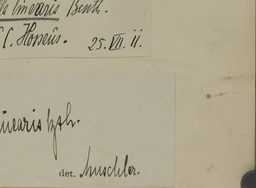 linearis Benth.
C. Hosseus. 25. VII. 11.
linearis
det. Muschler.